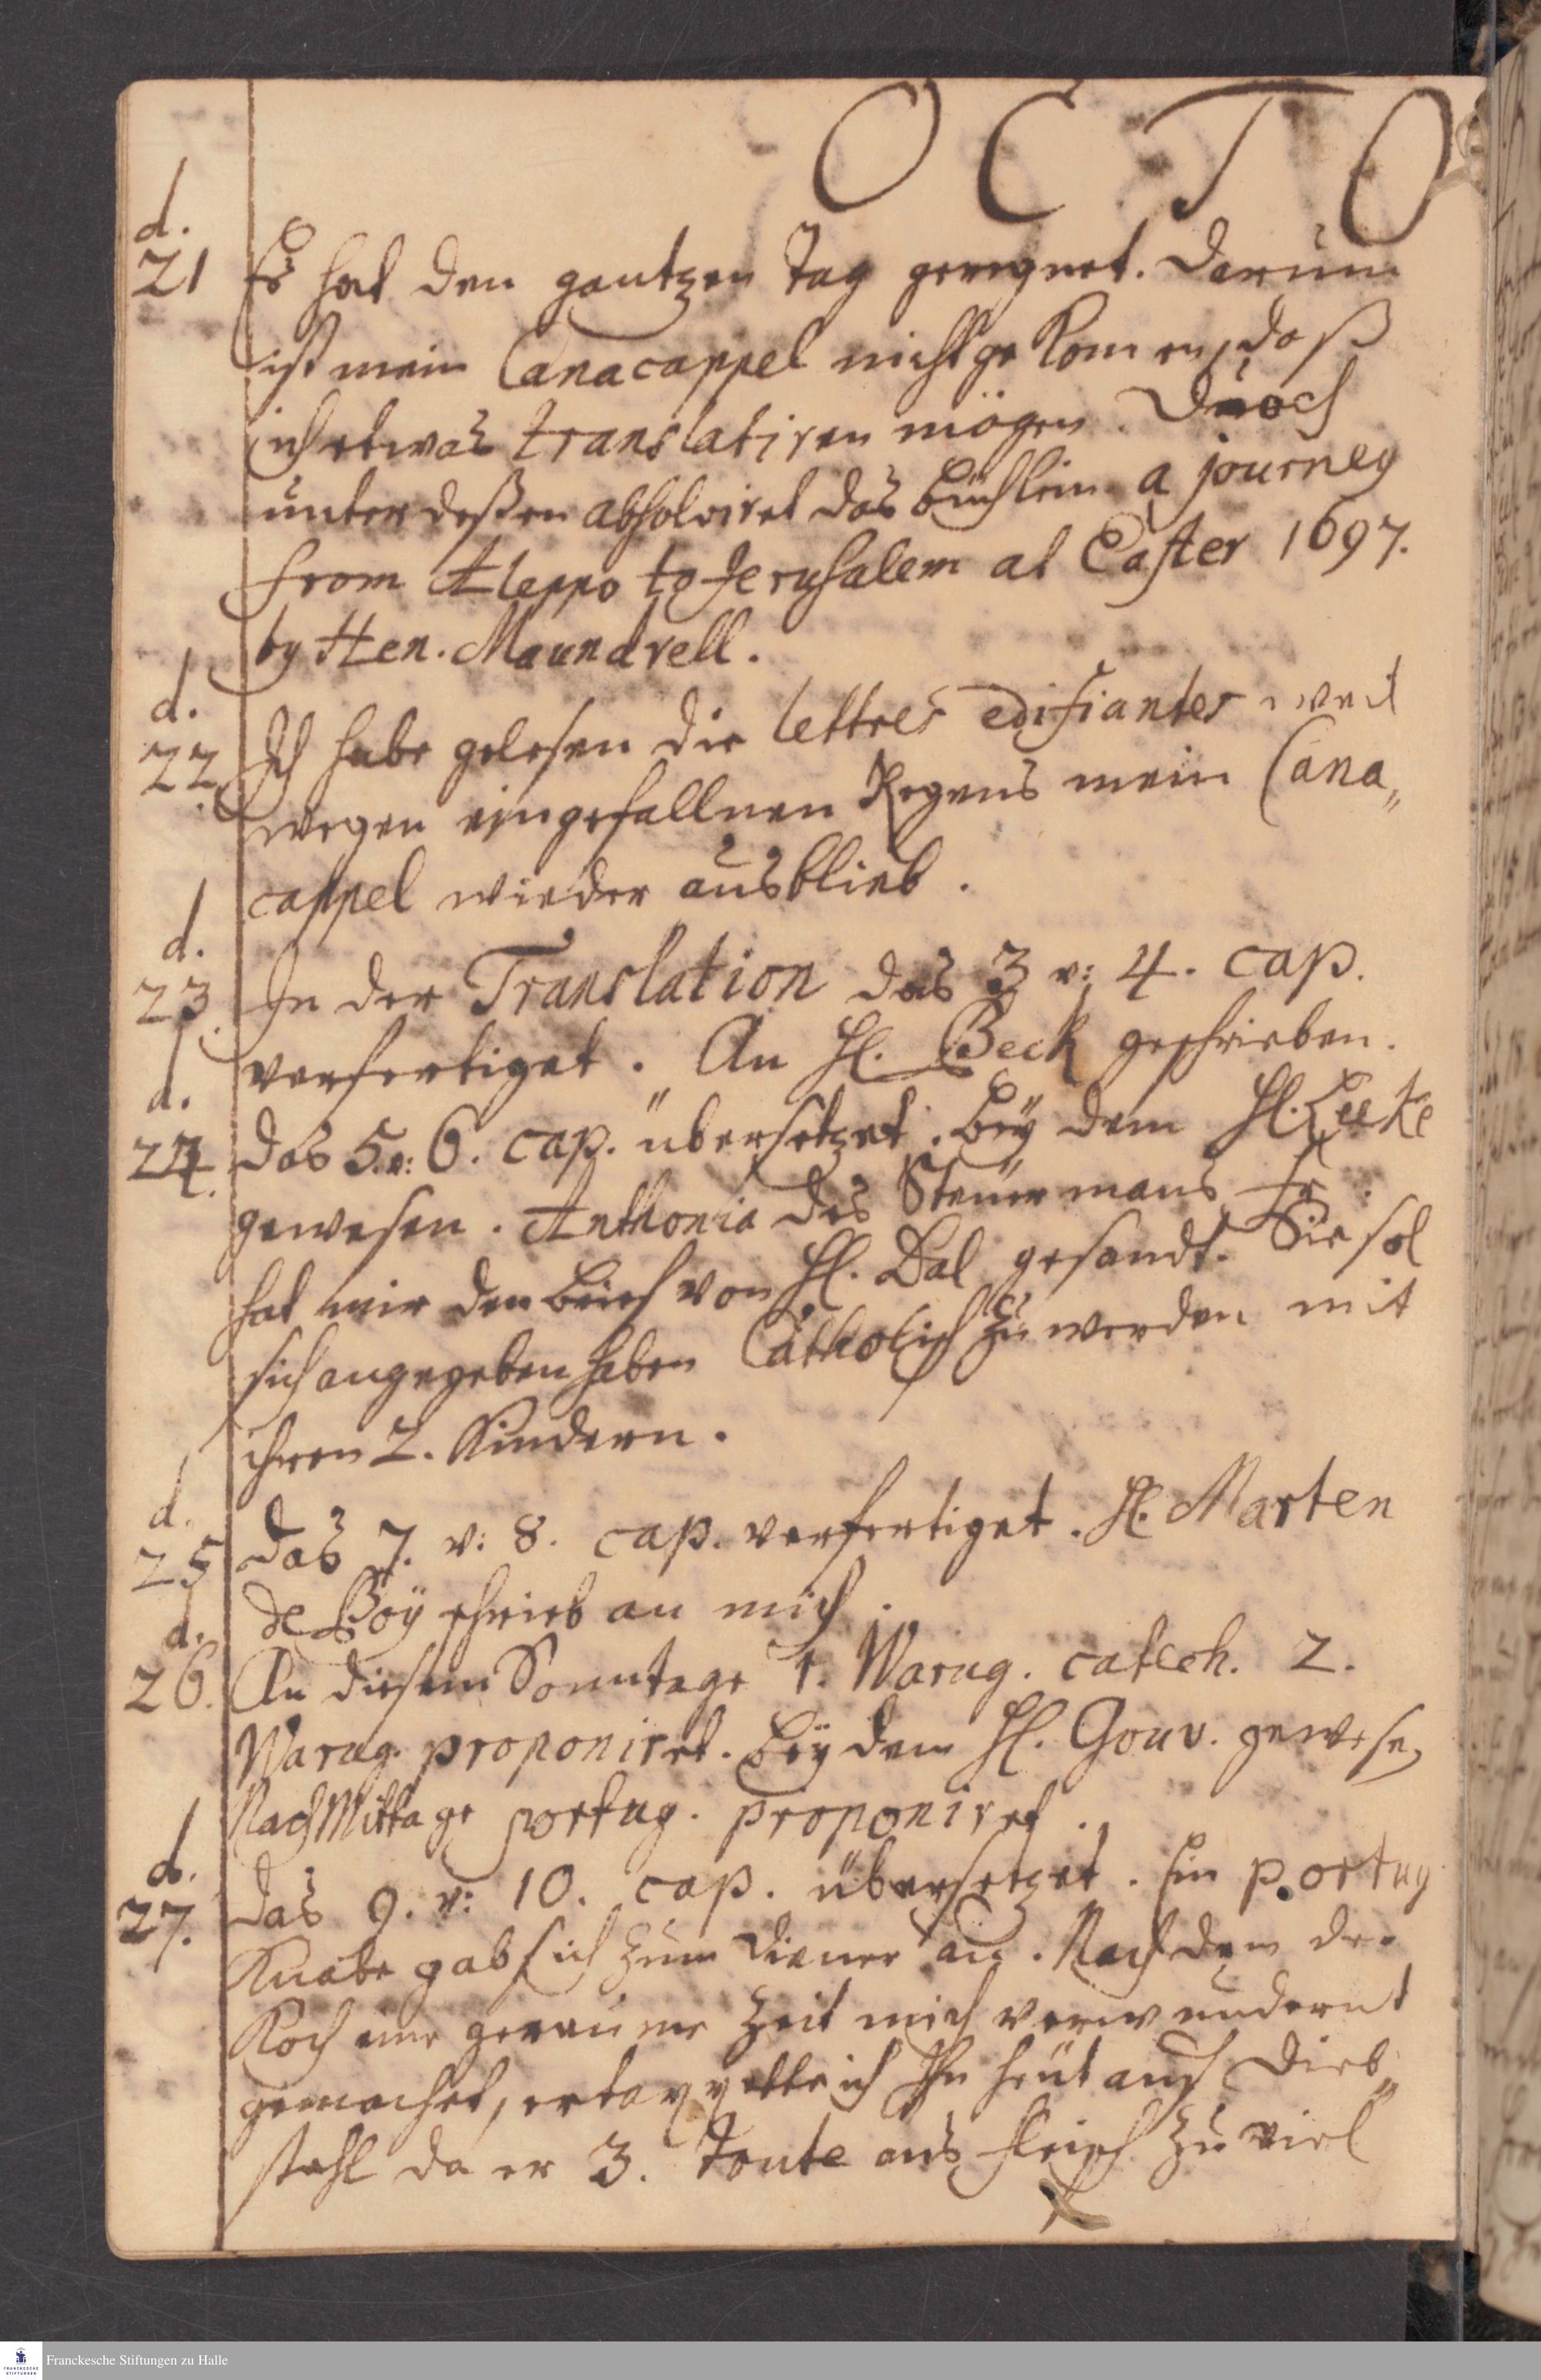 OCTO
d. 21 Es hat den gantzen Tag geregnet. Darum
ist mein Canacappel nicht gekomen, daß
ich etwas translatiren mögen. Doch
unterdeßen absolviret das büchlein a journey
from Aleppo to Jerusalem at Easter 1697.
by Hen. Maundrell.
d. 22. Ich habe gelesen die lettres edifiantes weil
wegen eingefallnen Regens mein Cana„
cappel wieder ausblieb.
d. 23. In der Translation das 3 u: 4. cap.
verfertiget. An H. Beck geschrieben.
d. 24. Das 5. u: 6. cap. übersetzet. bey dem H.
gewesen. Anthonia des Steürmans Fr.
hat mir den brief von H. Dal gesandt. Sie sol
sich angegeben haben Catholisch zu werden mit
ihren 2. Kindern.
d. 25 Das 7. u: 8. cap. verfertiget. H. Marten
de Boÿ schrieb an mich.
d. 26. An diesem Sonntage 1. Warug. catech. 2.
Warug. proponiret. bey dem H. Gouv. gewesen,
NachMittage portug. proponiret.
d. 27. Das 9. u: 10. cap. übersetzet. Ein portug.
Knabe gab sich zum Diener an. Nachdem der
Koch eine geraume Zeit mich verwundernt
gemachet, ertappette ich Ihn heut auf Dieb„
stahl da er 3. Toute aus fleisch zu viel
Franckesche Stiftungen zu Halle